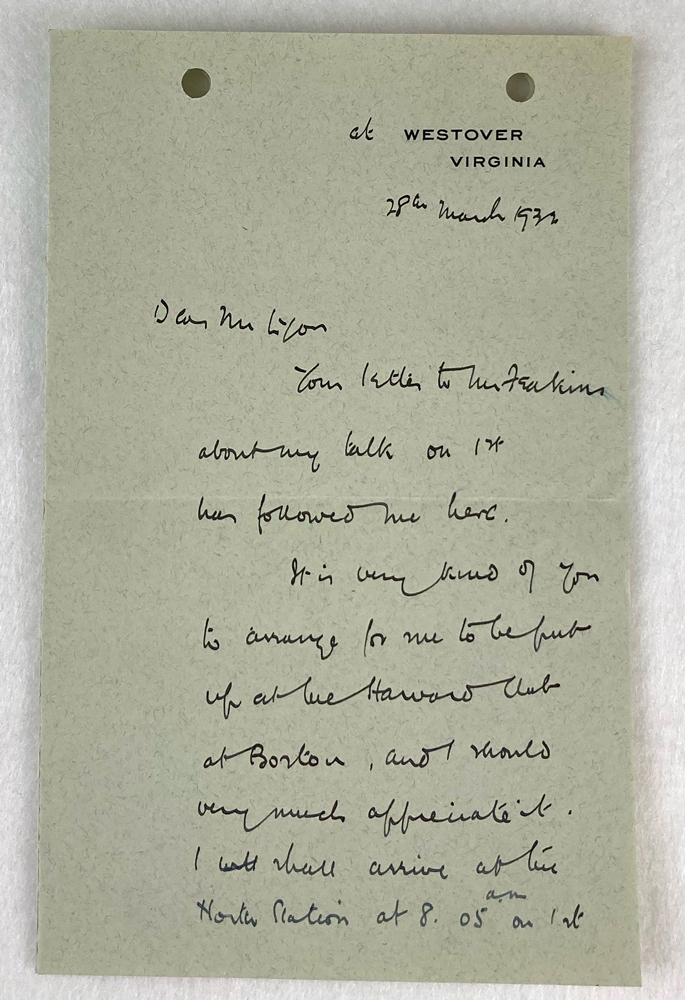 at WESTOVER
VIRGINIA
28th March 1932
Dear Mr Lyon
Your letter to Mr Feakins
about my talk on 1st
has followed me here.
It is very kind of you
to arrange for me to be put
up at the Harvard Club
at Boston, and I should
very much appreciate it.
I will shall arrive at the
North Station at 8.05 am on 1st